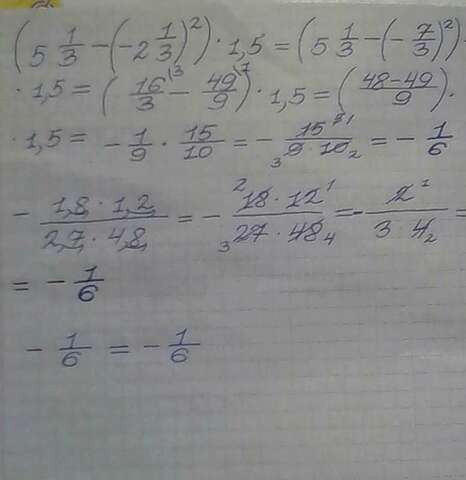 (5 1/3 − (−2 1/3)²) · 1,5 = (5 1/3 − (−7/3)²) ·
· 1,5 = (16/3 \3 − 49/9 \1) · 1,5 = (48−49/9) ·
· 1,5 = −1/9 · 15/10 = −15/9·10 = −1/6
− 1,8 · 1,2 / 2,7 · 4,8 = − 18 · 12 / 27 · 48 = − 2 / 3 · 4 =
= −1/6
−1/6 = −1/6